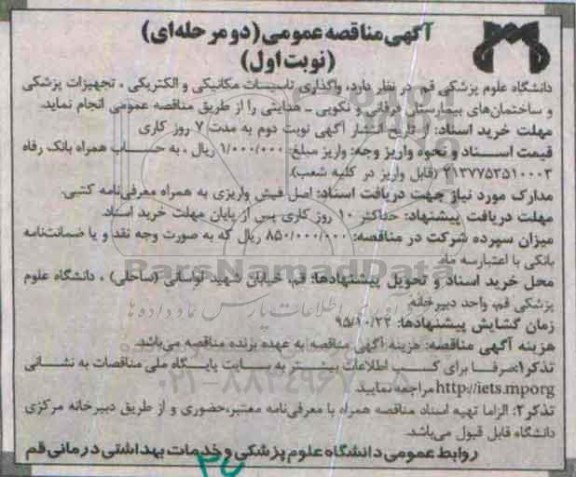 آگهی مناقصه عمومی (دو مرحله‌ای)
(نوبت اول)
دانشگاه علوم پزشکی قم در نظر دارد، واگذاری تاسیسات مکانیکی و الکتریکی ، تجهیزات پزشکی
و ساختمان‌های بیمارستان فرقانی و نکویی ـ هدایتی را از طریق مناقصه عمومی انجام نماید.
مهلت خرید اسناد: از تاریخ انتشار آگهی نوبت دوم به مدت ۷ روز کاری
قیمت اسناد و نحوه واریز وجه: واریز مبلغ ۱/۰۰۰/۰۰۰ ریال ، به حساب همراه بانک رفاه
۲۱۳۷۷۵۳۵۱۰۰۰۳ (قابل واریز در کلیه شعب).
مدارک مورد نیاز جهت دریافت اسناد: اصل فیش واریزی به همراه معرفی‌نامه کتبی.
مهلت دریافت پیشنهاد: حداکثر ۱۰ روز کاری پس از پایان مهلت خرید اسناد.
میزان سپرده شرکت در مناقصه: ۸۵۰/۰۰۰/۰۰۰ ریال که به صورت وجه نقد و یا ضمانتنامه
بانکی با اعتبار سه ماه.
محل خرید اسناد و تحویل پیشنهادها: قم، خیابان شهید لواسانی (ساحلی) ، دانشگاه علوم
پزشکی قم، واحد دبیرخانه.
زمان گشایش پیشنهادها: ۹۵/۱۰/۲۲
هزینه آگهی مناقصه: هزینه آگهی مناقصه به عهده برنده مناقصه می‌باشد.
تذکر۱: صرفا برای کسب اطلاعات بیشتر به سایت پایگاه ملی مناقصات به نشانی
http://iets.mporg مراجعه نمایید
تذکر۲: الزاما تهیه اسناد مناقصه همراه با معرفی‌نامه معتبر، حضوری و از طریق دبیرخانه مرکزی
دانشگاه قابل قبول می‌باشد.
روابط عمومی دانشگاه علوم پزشکی و خدمات بهداشتی درمانی قم
ParsNamadData